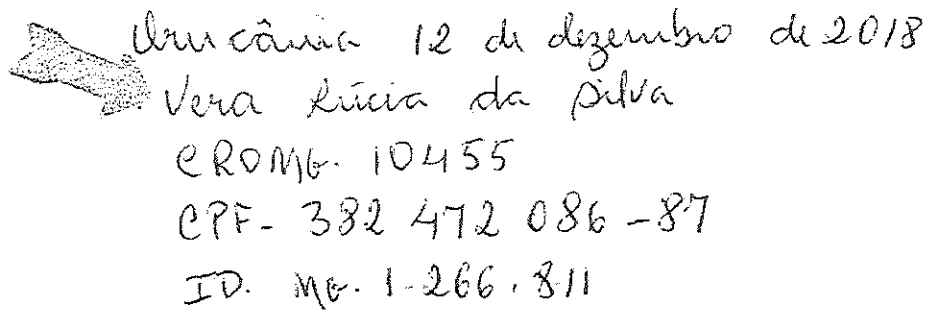 Urucânia 12 de dezembro de 2018
Vera Lúcia da Silva
CROMG. 10455
CPF- 382 472 086-87
ID. MG. 1.266.811